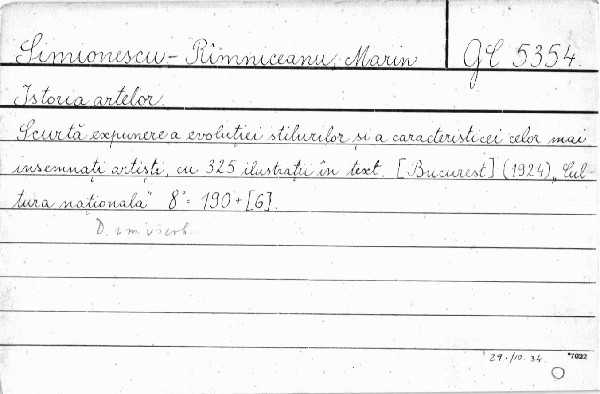 Simionescu-Rîmniceanu, Marin
GC 5354.
Istoria artelor.
Scurtă expunere a evoluției stilurilor și a caracteristicei celor mai
insemnați artiști, cu 325 ilustrații în text. [Bucureşt] (1924) „Cul-
tura națională" 8° = 190+[6].
D.
29./10. 34.
*7022